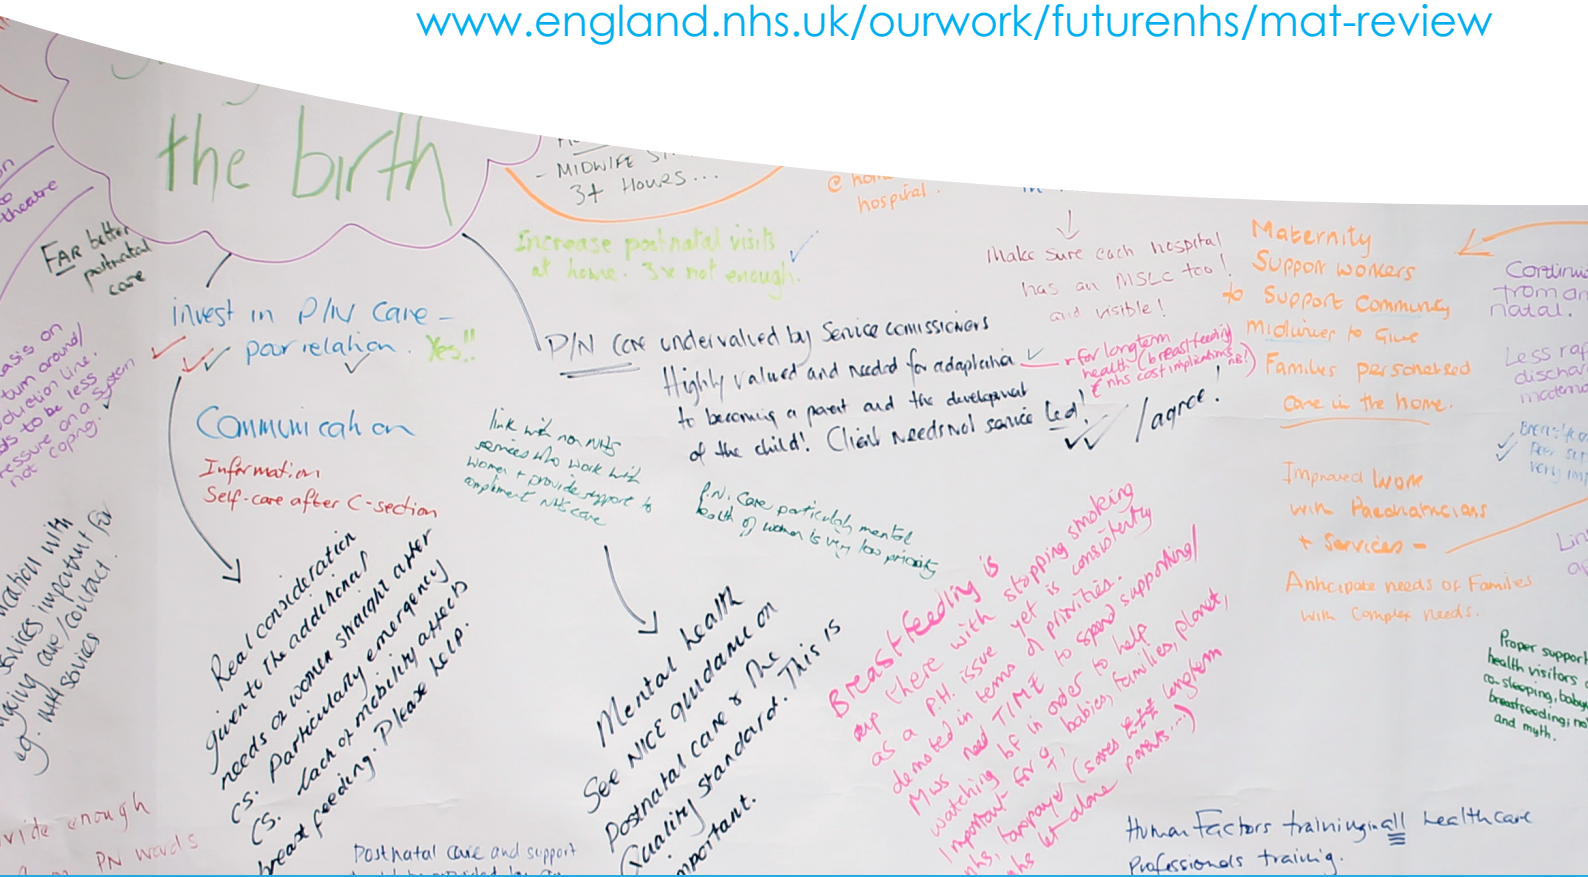 www.england.nhs.uk/ourwork/futurenhs/mat-review
the birth
- MIDWIFE
3+ Hours...
@
hospital.
theatre
FAR better
postnatal
care
Increase postnatal visits
at home. 3x not enough.
Make sure each hospital
has an MSLC too!
and visible!
Maternity
Support workers
to Support Community
Midwives to Give
Families personalised
care in the home.
from
natal.
invest in P/N care -
poor relation. Yes!!
P/N Care undervalued by Service comissioners
Highly valued and needed for adaptation
to becoming a parent and the development
of the child! Client needs not service led!
I agree!
for longterm
health (breastfeeding
& nhs cost implications
NB!)
turn around/
production line.
to be less
pressure on a system
not coping.
Communication
Information
Self-care after C-section
link with non NHS
services who work with
women + provide support to
compliment NHS care
P.N. Care particularly mental
health of women is very low priority
Less
Improved work
with Paediatricians
+ Services -
Anticipate needs of Families
with complex needs.
with
services important for
care/contact.
eg. NHS services
Real consideration
given to the additional
needs of women straight after
CS. Particularly emergency
CS. Lack of mobility affects
breast feeding. Please help.
Mental health
See NICE guidance on
Postnatal care & the
Quality Standard. This is
important.
Breastfeeding is
up there with stopping smoking
as a P.H. issue yet is consistently
demoted in terms of priorities.
MWs need TIME to spend supporting/
watching bf in order to help
Important for ♀, babies, families, planet,
nhs, taxpayer (saves £££ longterm
nhs let alone parents...)
Proper support
health visitors
co-sleeping,
breastfeeding;
and myth.
enough
PN wards
Postnatal care and support
Human Factors training in all healthcare
Professionals training.